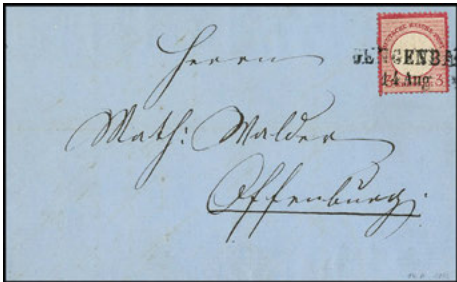 GENGENBA
14 Aug.
3
Herrn
Math: Walder
Offenburg.